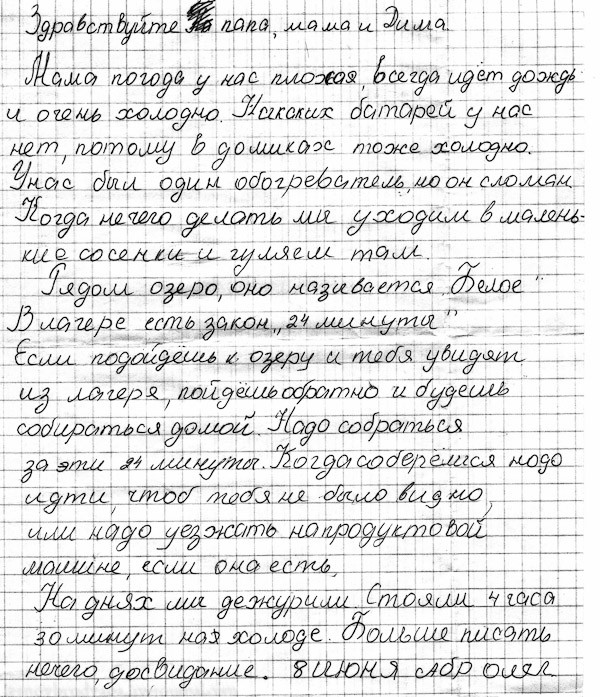 Здравствуйте папа, мама и Дима.
Мама погода у нас плохая, всегда идёт дождь
и очень холодно. Никаких батарей у нас
нет, потому в домиках тоже холодно.
У нас был один обогреватель, но он сломан.
Когда нечего делать мы уходим в малень-
кие сосенки и гуляем там.
Рядом озеро, оно называется „Белое"
В лагере есть закон „24 минуты"
Если подойдёшь к озеру и тебя увидят
из лагеря, пойдёшь обратно и будешь
собираться домой. Надо собраться
за эти 24 минуты. Когда соберёшся надо
идти, чтоб тебя не было видно,
или надо уезжать на продуктовой
машине, если она есть,
На днях мы дежурили Стояли 4 часа
30 минут на холоде. Больше писать
нечего, досвидание. 8 июня